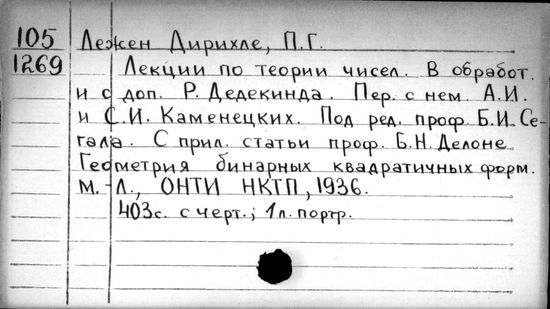 105 Лежен Дирихле, П.Г.
1269 Лекции по теории чисел. В обработ.
и с доп. Р. Дедекинда. Пер. с нем. А.И.
и С.И. Каменецких. Под ред. проф. Б.И. Се-
гала. С прил. статьи проф. Б.Н. Делоне
Геометрия бинарных квадратичных форм.
М.-Л., ОНТИ НКТП, 1936.
403с. с черт.; 1 л. портр.